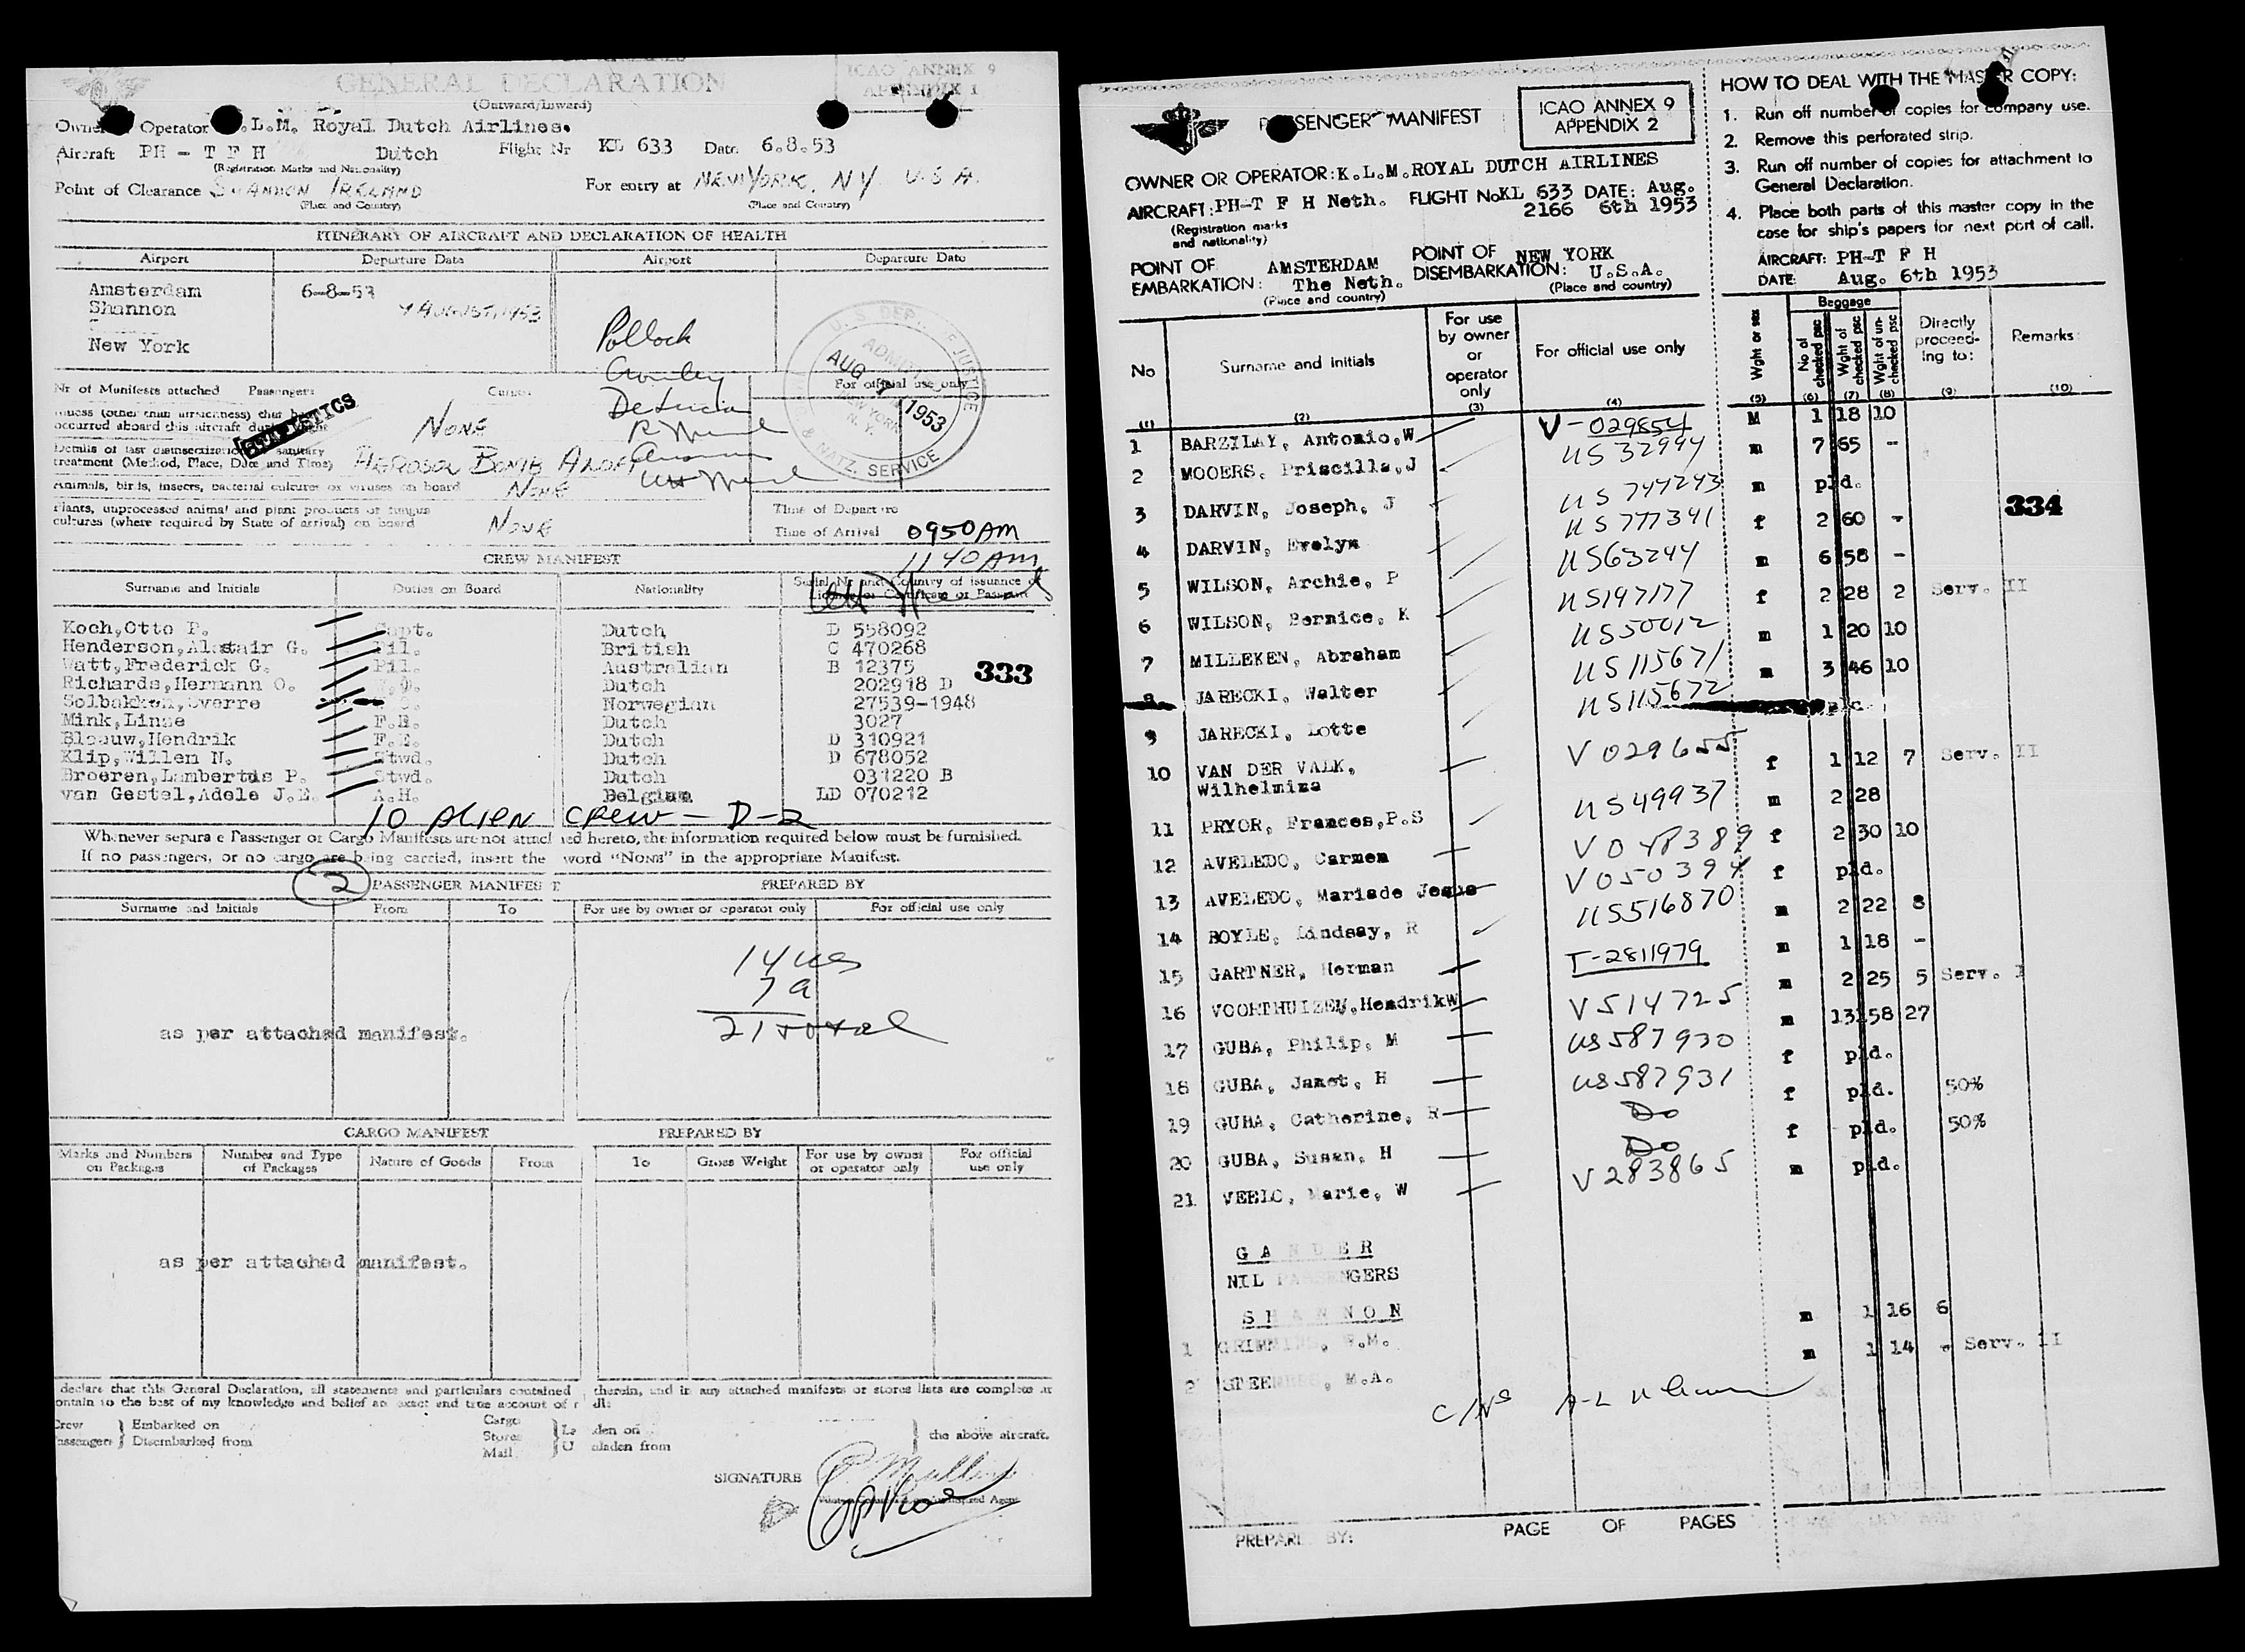 GENERAL DECLARATION
(Outward/Inward)
ICAO ANNEX 9
APPENDIX 1
Operator .L.M. Royal Dutch Airlines.
Aircraft PH - T F H Dutch Flight Nr KL 633 Date 6.8.53
(Registration Marks and Nationality)
Point of Clearance SHANNON IRELAND For entry at NEW YORK. N.Y. U.S.A.
(Place and Country) (Place and Country)
ITINERARY OF AIRCRAFT AND DECLARATION OF HEALTH
Airport Departure Date Airport Departure Date
Amsterdam 6-8-53
Shannon 7 AUGUST, 1953
New York
Pollock
Crowley
DeLucia
U.S. DEPT. JUSTICE
ADMITTED
AUG 7 1953
NEW YORK
N.Y.
& NATZ. SERVICE
Nr of Manifests attached Passengers Cargo
For official use only
STATISTICS
Illness (other than airsickness) that has
occurred aboard this aircraft during flight NONE
Details of last disinsectization or sanitary
treatment (Method, Place, Date and Time) AEROSOL BOMB
Animals, birds, insects, bacterial cultures or viruses on board NONE
Plants, unprocessed animal and plant products or fungus
cultures (where required by State of arrival) on board NONE
Time of Departure
Time of Arrival 0950 AM
1140 AM
CREW MANIFEST
Surname and Initials Duties on Board Nationality Serial Nr and Country of issuance of
License or Certificate or Passport
Koch,Otto P. Capt. Dutch D 558092
Henderson,Alastair G. Pil. British C 470268
Watt,Frederick G. Pil. Australian B 12375
333
Richards,Hermann O. Dutch 202918 D
Solbakken,Sverre Norwegian 27539-1948
Mink,Linse F.E. Dutch 3027
Blaauw,Hendrik F.E. Dutch D 310921
Klip,Willen N. Stwd. Dutch D 678052
Broeren,Lambertus P. Stwd. Dutch 031220 B
van Gestel,Adele J.E. A.H. Belgium LD 070212
10 ALIEN CREW - D-2
Whenever separate Passenger or Cargo Manifests are not attached hereto, the information required below must be furnished.
If no passengers, or no cargo are being carried, insert the word "None" in the appropriate Manifest.
2 PASSENGER MANIFEST PREPARED BY
Surname and Initials From To For use by owner or operator only For official use only
14 ucs
7 a
21 total
as per attached manifest.
CARGO MANIFEST PREPARED BY
Marks and Numbers
on Packages Number and Type
of Packages Nature of Goods From To Gross Weight For use by owner
or operator only For official
use only
as per attached manifest.
declare that this General Declaration, all statements and particulars contained therein, and in any attached manifests or stores lists are complete
to the best of my knowledge and belief an exact and true account of
Crew Embarked on Cargo Laden on
Passengers Disembarked from Stores Mail Unladen from the above aircraft.
SIGNATURE
PASSENGER MANIFEST
ICAO ANNEX 9
APPENDIX 2
OWNER OR OPERATOR: K.L.M.ROYAL DUTCH AIRLINES
AIRCRAFT: PH-T F H Neth. FLIGHT No KL 633 DATE: Aug.
2166 6th 1953
(Registration marks
and nationality)
POINT OF
EMBARKATION: AMSTERDAM
The Neth.
(Place and country)
POINT OF
DISEMBARKATION: NEW YORK
U.S.A.
(Place and country)
HOW TO DEAL WITH THE MASTER COPY:
1. Run off number of copies for company use.
2. Remove this perforated strip.
3. Run off number of copies for attachment to
General Declaration.
4. Place both parts of this master copy in the
case for ship's papers for next port of call.
AIRCRAFT: PH-T F H
DATE: Aug. 6th 1953
No Surname and initials For use
by owner
or
operator
only For official use only Wght or sex Baggage
No of
checked psc Wght of
checked psc Wght of un-
checked psc Directly
proceed-
ing to: Remarks
(1) (2) (3) (4) (5) (6) (7) (8) (9) (10)
1 BARZILAY, Antonio,W V-029854 M 1 18 10
2 MOOERS, Priscilla,J US 32994 m 7 65 -
3 DARVIN, Joseph, J US 747243 m pld.
334
4 DARVIN, Evelyn US 777341 f 2 60 -
5 WILSON, Archie, P US63244 m 6 58 -
6 WILSON, Bernice, K US197177 f 2 28 2 Serv. II
7 MILLEKEN, Abraham US50012 m 1 20 10
8 JARECKI, Walter US 115671 m 3 46 10
9 JARECKI, Lotte US115672 pld.
10 VAN DER VALK,
Wilhelmina V 029655 f 1 12 7 Serv. II
11 PRYOR, Frances,P.S US 49937 m 2 28
12 AVELEDO, Carmen V 048389 f 2 30 10
13 AVELEDO, Mariade Jesus V050394 f pld.
14 BOYLE, Lindsay, R US516870 m 2 22 8
15 GARTNER, Herman T-2811979 m 1 18 -
16 VOORTHUIZEN,HendrikW V514725 m 2 25 5 Serv. I
17 GUBA, Philip, M US587930 m 13 158 27
18 GUBA, Janet, H US587931 f pld.
19 GUBA, Catherine, R Do f pld. 50%
20 GUBA, Susan, H Do f pld. 50%
21 VEELO, Marie, W V283865 m pld.
G A N D E R
NIL PASSENGERS
S H A N N O N
1 , .M. m 1 16 6
2 , M.A. m 1 14 - Serv. II
PREPARED BY: PAGE OF PAGES